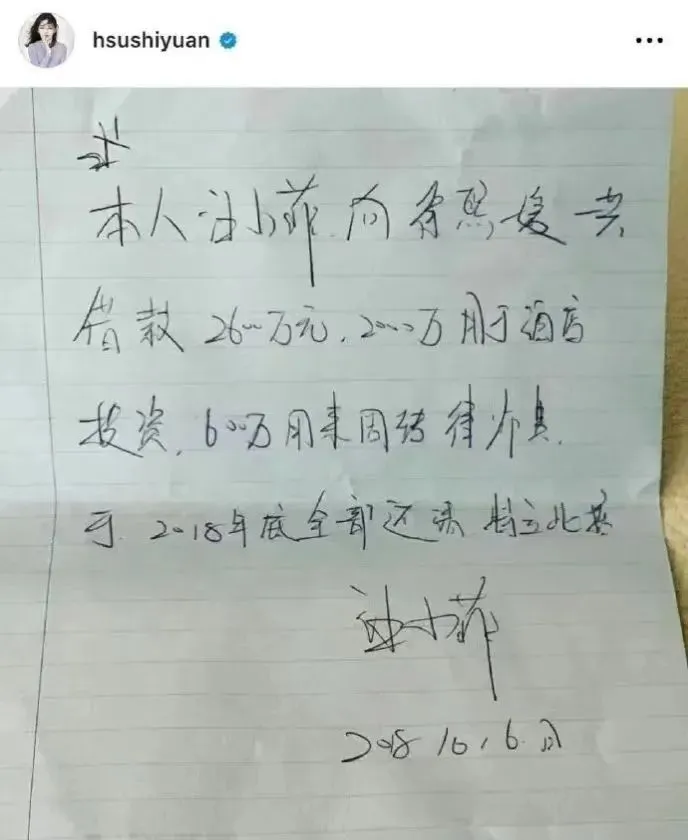 hsushiyuan
本人汪小菲.向徐熙媛共
借款2600万元,2000万用于酒店
投资,600万用来周转
于2018年底全部还清 特立此据
汪小菲
2018 10,6.日